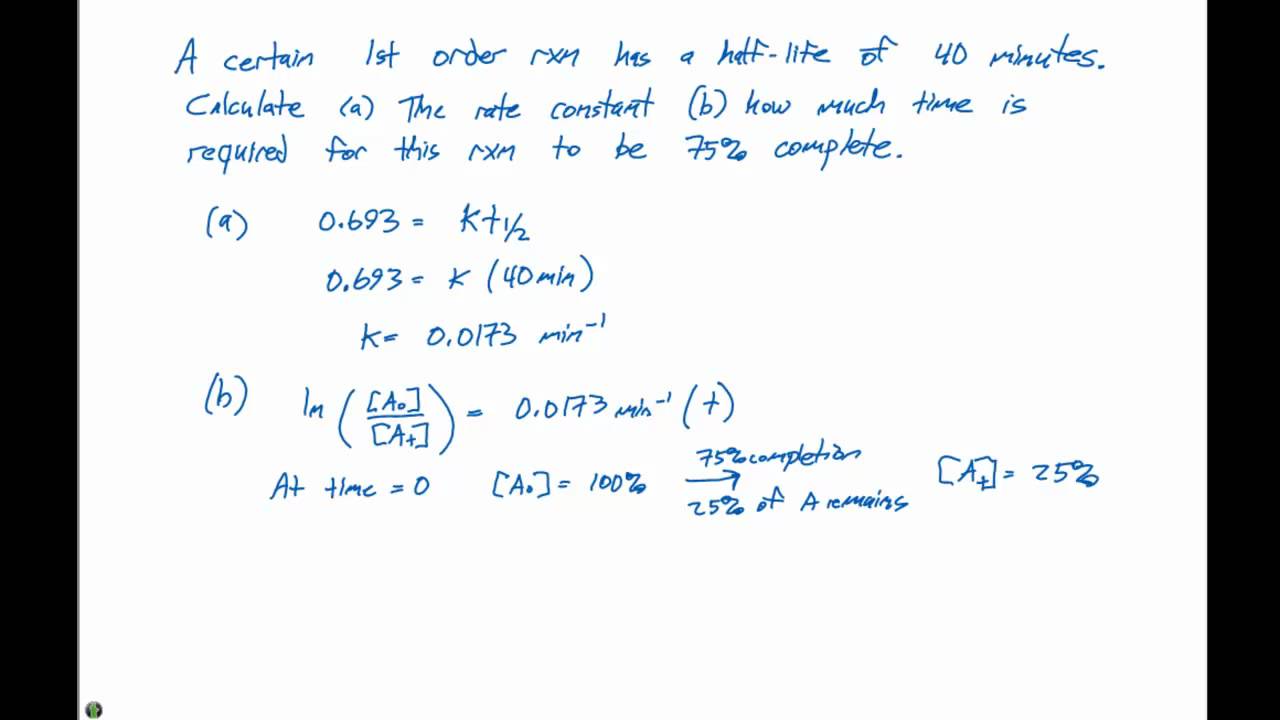 A certain 1st order rxn has a half-life of 40 minutes.
Calculate (a) The rate constant (b) how much time is
required for this rxn to be 75% complete.
(a) 0.693 = kt1/2
0.693 = k (40min)
k= 0.0173 min⁻¹
(b) ln ([A₀]/[At]) = 0.0173 min⁻¹ (t)
At time = 0 [A₀] = 100% 75% completion → 25% of A remains [At] = 25%